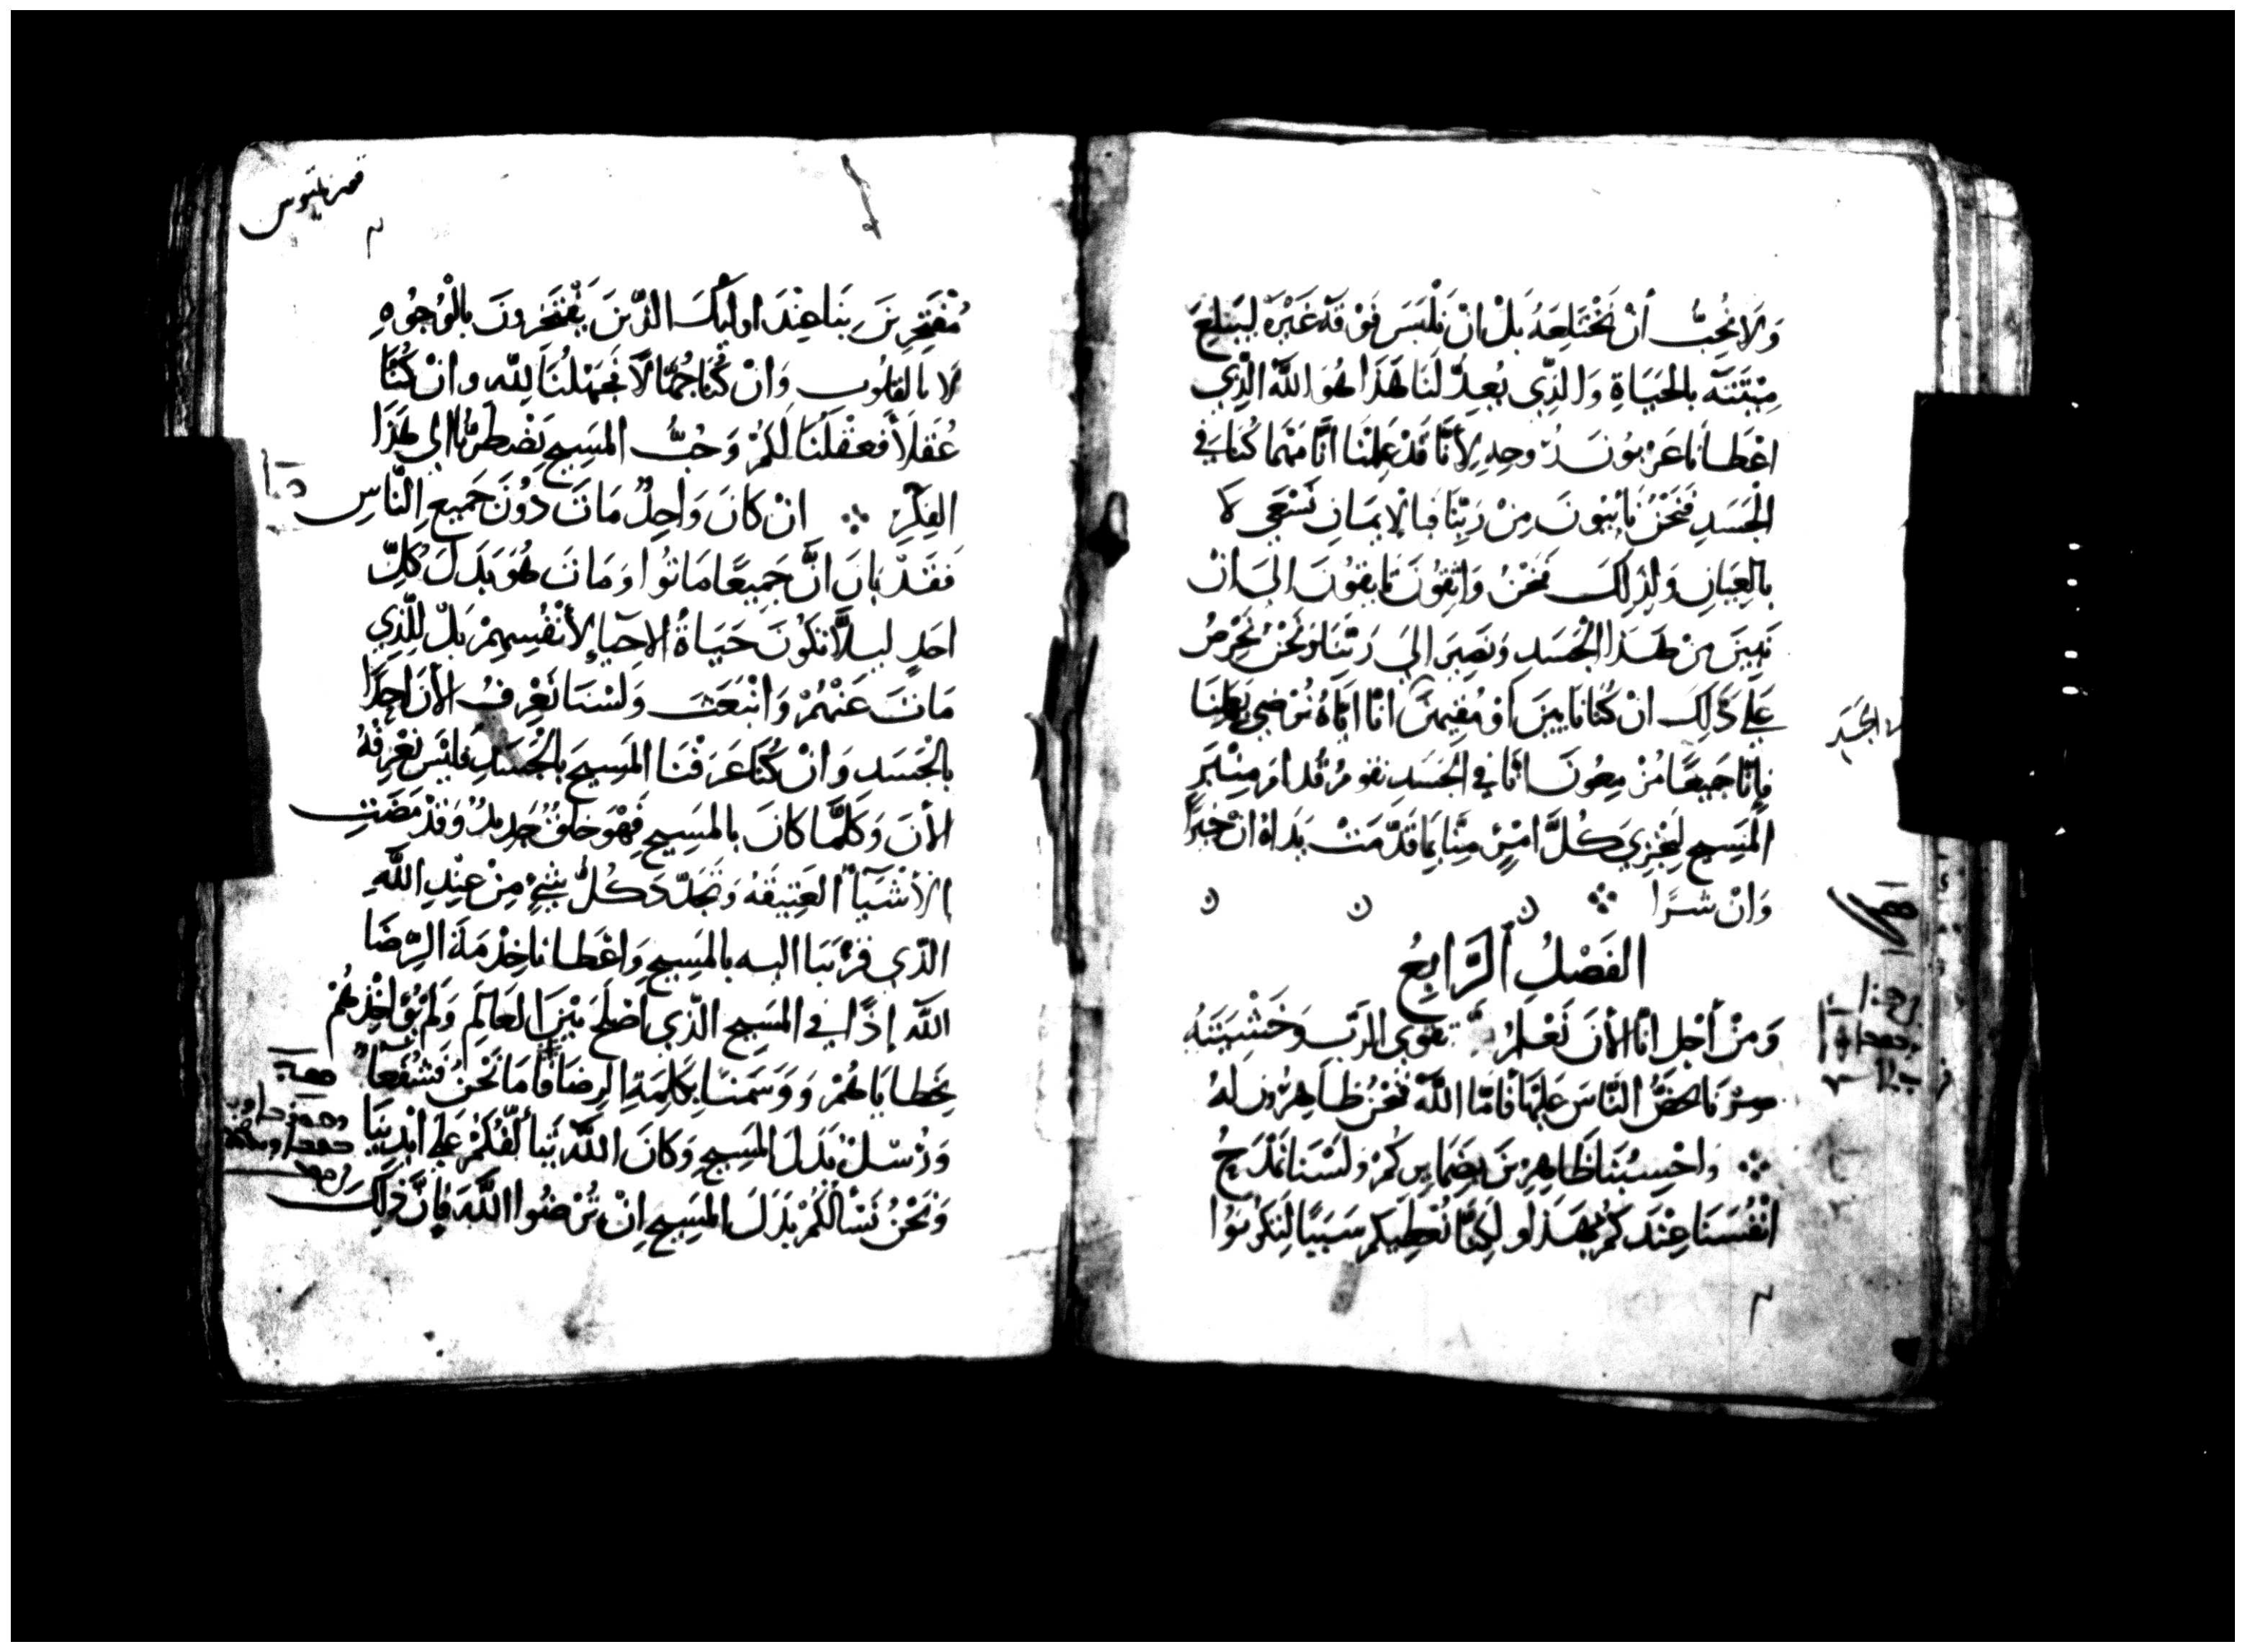 وَلَا نُحِبُّ أَنْ نَخْتَلِعَهُ بَلْ انْ نَلْبَسَ فَوْقَهُ غَيْرَهُ لِيُبتَلعَ
مِيْتَتَه بالحَيَاةِ وَالذِّي يُعِدُّ لَنَا لهَذَا هُوَ اللَّه الَّذِي
اعْطَانَا عَرْبُونَ رُوحِهِ لِأَنَّا قَدْ عَلِمْنَا انَّا مَهْمَا كُنَّا فِي
الْجَسَدِ فَنَحْنُ نَايبُونَ مِنْ رَبِّنَا فبالايمَانِ نَسْعَي لَا
بالعِيَانِ وَلِذَلِكَ نَحْنُ وَاثِقُونَ تَايقُونَ الىَ انْ
نَبِينَ مِنْ هَذَا الْجَسَدِ وَنَصِيرَ الىَ رَبِّنَا وَنَحْنُ نَحْرِصُ
عَلَي ذَلِكَ انْ كُنَّا نَايِينَ اوْ مُقِيمِينَ انَّا ايَّاهُ نُرْضِي بِعَمَلِنَا
فإنّا جَمِيعًا مُزْمِعُونَ انّا في الجَسَد نقومُ قُدامَ مِنْبَرِ
المَسِيح لِيُجْزِي كُلَّ امْرئٍ مِنَّا بِمَا قَدَّمَتْ يَدَاهُ انْ خَيرًا
وَانْ شرًا
الفَصْلُ الرَّابِعُ
وَمنْ أَجْلِ انّا الأنَ نَعْلَمُ تقوى الرَّبِ وَخَشْيَتَهُ
صِرْنَا نحُضُّ النَّاسَ عَلَيْهَا فَأمّا اللَّه فَنَحْنُ ظَاهِرُونَ لَهُ
وَاحْسِبُنَا ظَاهِرينَ بِضَمَايِرِكُمْ وَلَسْنَا نَمْدَحُ
انْفُسَنَا عِنْدَكُمْ بِهَذَا وَلكِنّا نُعْطِيكم سَبَبًا لِتَكُونُوا
قورنثيوس
مُفْتَخِرِينَ بِنَا عِنْدَ اولَيِكَ الذِّينَ يَفْتَخِرونَ بالْوُجُوهِ
لا بالقلُوبِ وَانْ كُنّا جُهّالًا فجَهْلُنَا لِلَّه وانْ كُنّا
عُقَلَاً فعَقْلُنَا لَكُمْ وَحُبُّ المَسِيح يَضْطرّنا الى هَذَا
الفِكْرِ انْ كَانَ وَاحِدٌ مَاتَ دُونَ جَمِيعِ النَّاسِ
فَقَدْ بَانَ انَّ جَمِيعًا مَاتُوا وَمَاتَ هُوَ بَدَلَ كلِّ
احَدٍ ليلاَّ تكُونَ حَيَاةُ الاحيَاءِ لأَنْفُسِهِمْ بَلْ لِلَّذِي
مَاتَ عَنْهُمْ وَانْبَعَثَ وَلسْنَا نَعْرِفُ الأنَ احِدًا
بالْجَسَدِ وَانْ كُنَّا عَرَفْنَا المَسِيحَ بالْجَسَدِ فليْسَ نَعْرِفُهُ
الأنَ وَكلَّمَا كانَ بالمَسِيحِ فَهْوَ خَلقٌ جَدِيدٌ وَقَدْ مَضَتِ
الأشْيَآءُ العَتِيقَه وَتَجدَّدَ كُلُّ شَيْءٍ مِنْ عِنْدِ اللَّهِ
الذِّي قرّبَنا اليه بالمَسِيحِ وَاعْطَانَا خِدْمَةَ الرِّضَا
اللَّه إذًا فى المَسِيحِ الذِّي اصْلَحَ بَيْنَ العَالَمِ وَلَمْ يُؤاخِذهُمْ
بخَطايَاهُمْ وَوَسَمَنَا بِكَلِمَةِ الرِضَا فَأَمَا نَحْنُ فشُفَعَا
وَرُسُلٌ بَدَلَ المَسِيحِ وَكانَ اللَّه يَتَأَلَّفُكُمْ عَلى ايْدِينَا
وَنَحْنُ نَسْألُكُمْ بَدَلَ المَسِيحِ انْ تَرْضَوا اللَّهَ فإنَّ ذَلِكَ